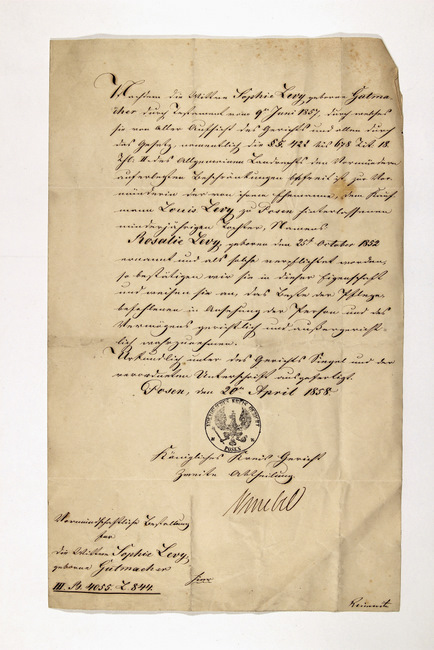 Nachdem die Wittwe Sophie Levy, geborene Gutma-
cher durch Testament vom 9ten Juni 1857, durch welches
sie von aller Aufsicht des Gerichts und allen durch
das Gesetz, namentlich die §.§. 422 bis 678 Tit 18
Thl. II des Allgemeinen Landrechts den Vormündern
auferlegten Beschränkungen befreit ist, zur Vor-
münderin der von ihrem Ehemanne, dem Kauf-
mann Louis Levy zu Posen hinterlassenen
minderjährigen Tochter, Namens
Rosalie Levy, geboren den 25ten October 1852
ernannt und als solche verpflichtet worden,
so bestätigen wir sie in dieser Eigenschaft
und weisen sie an, das Beste der Pflege-
befohlenen in Ansehung der Person und des
Vermögens gerichtlich und außergericht-
lich wahrzunehmen.
Urkundlich unter des Gerichts Siegel und der
verordneten Unterschrift ausgefertigt.
Posen, den 20ten April 1858.
KOENIGLICHES KREIS GERICHT
POSEN
Königliches Kreis Gericht
Zweite Abtheilung
Vormundschaftliche Bestallung
für
die Wittwe Sophie Levy,
geborene Gutmacher
III. 4055. Z 844.